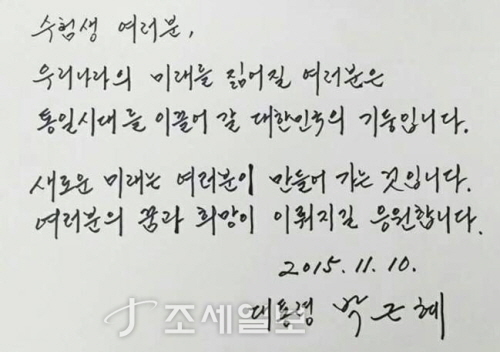 수험생 여러분,
우리나라의 미래를 짊어질 여러분은
통일시대를 이끌어 갈 대한민국의 기둥입니다.
새로운 미래는 여러분이 만들어 가는 것입니다.
여러분의 꿈과 희망이 이뤄지길 응원합니다.
2015.11.10.
대통령 박근혜
조세일보